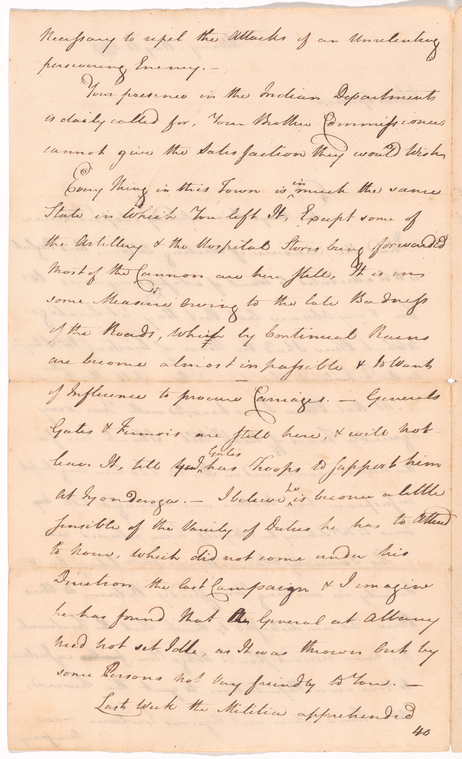 Necessary to repel the Attacks of an Unrelenting
persevering Enemy. —
Your presence in the Indian Department
is daily called for, Your Brother Commissioners
cannot give the Satisfaction they would Wish
Every thing in this Town is in much the same
State in which You left It, Except some of
the Artillery & the Hospital Stores being forwarded
Most of the Cannon are here still, It is in
some Measure owing to the late Badness
of the Roads, which by Continual Rains
are become almost impassible & to Want
of Influence to procure Carriages. — Generals
Gates & Fermois are still here, & will not
leave It, till Gates has Troops to Support him
at Tyonderoga. — I believe he is become a little
sensible of the Variety of Duties he has to Attend
to here, which did not come under his
Direction the last Campaign & I imagine
he has found that a General at Albany
need not set Idle, as It was thrown Out by
some Persons not very friendly to You. —
Last Week the Militia apprehended
40